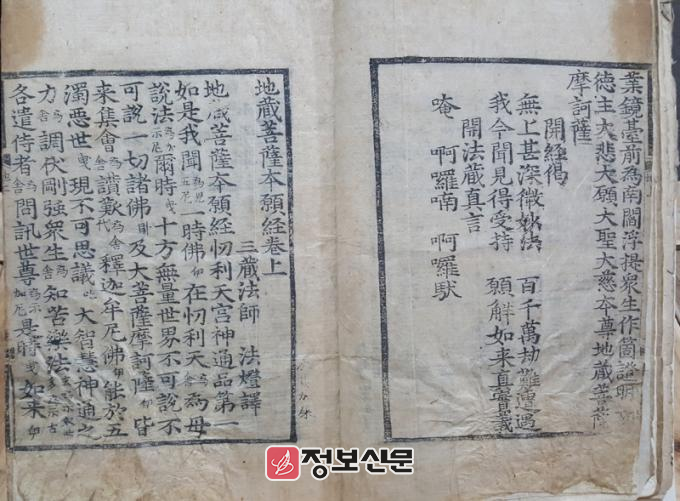 業鏡臺前為南閻浮提衆生作箇證明
德主大悲大願大聖大慈本尊地藏菩薩
摩訶薩
開經偈
無上甚深微妙法 百千萬劫難遭遇
我今聞見得受持 願解如来真實義
開法蔵真言
唵 啊囉喃 啊囉馱
地蔵菩薩本願經卷上
三蔵法師 法燈譯
地蔵菩薩本願經忉利天宮神通品第一
如是我聞 一時佛 在忉利天 為母
說法 爾時 十方無量世界不可說不
可說一切諸佛 及大菩薩摩訶薩 皆
来集會 讚歎 釋迦牟尼佛 能於五
濁悪世 現不可思議 大智慧神通之
力 調伏剛強衆生 知苦樂法
各遣侍者 問訊世尊 是時 如来
정보신문